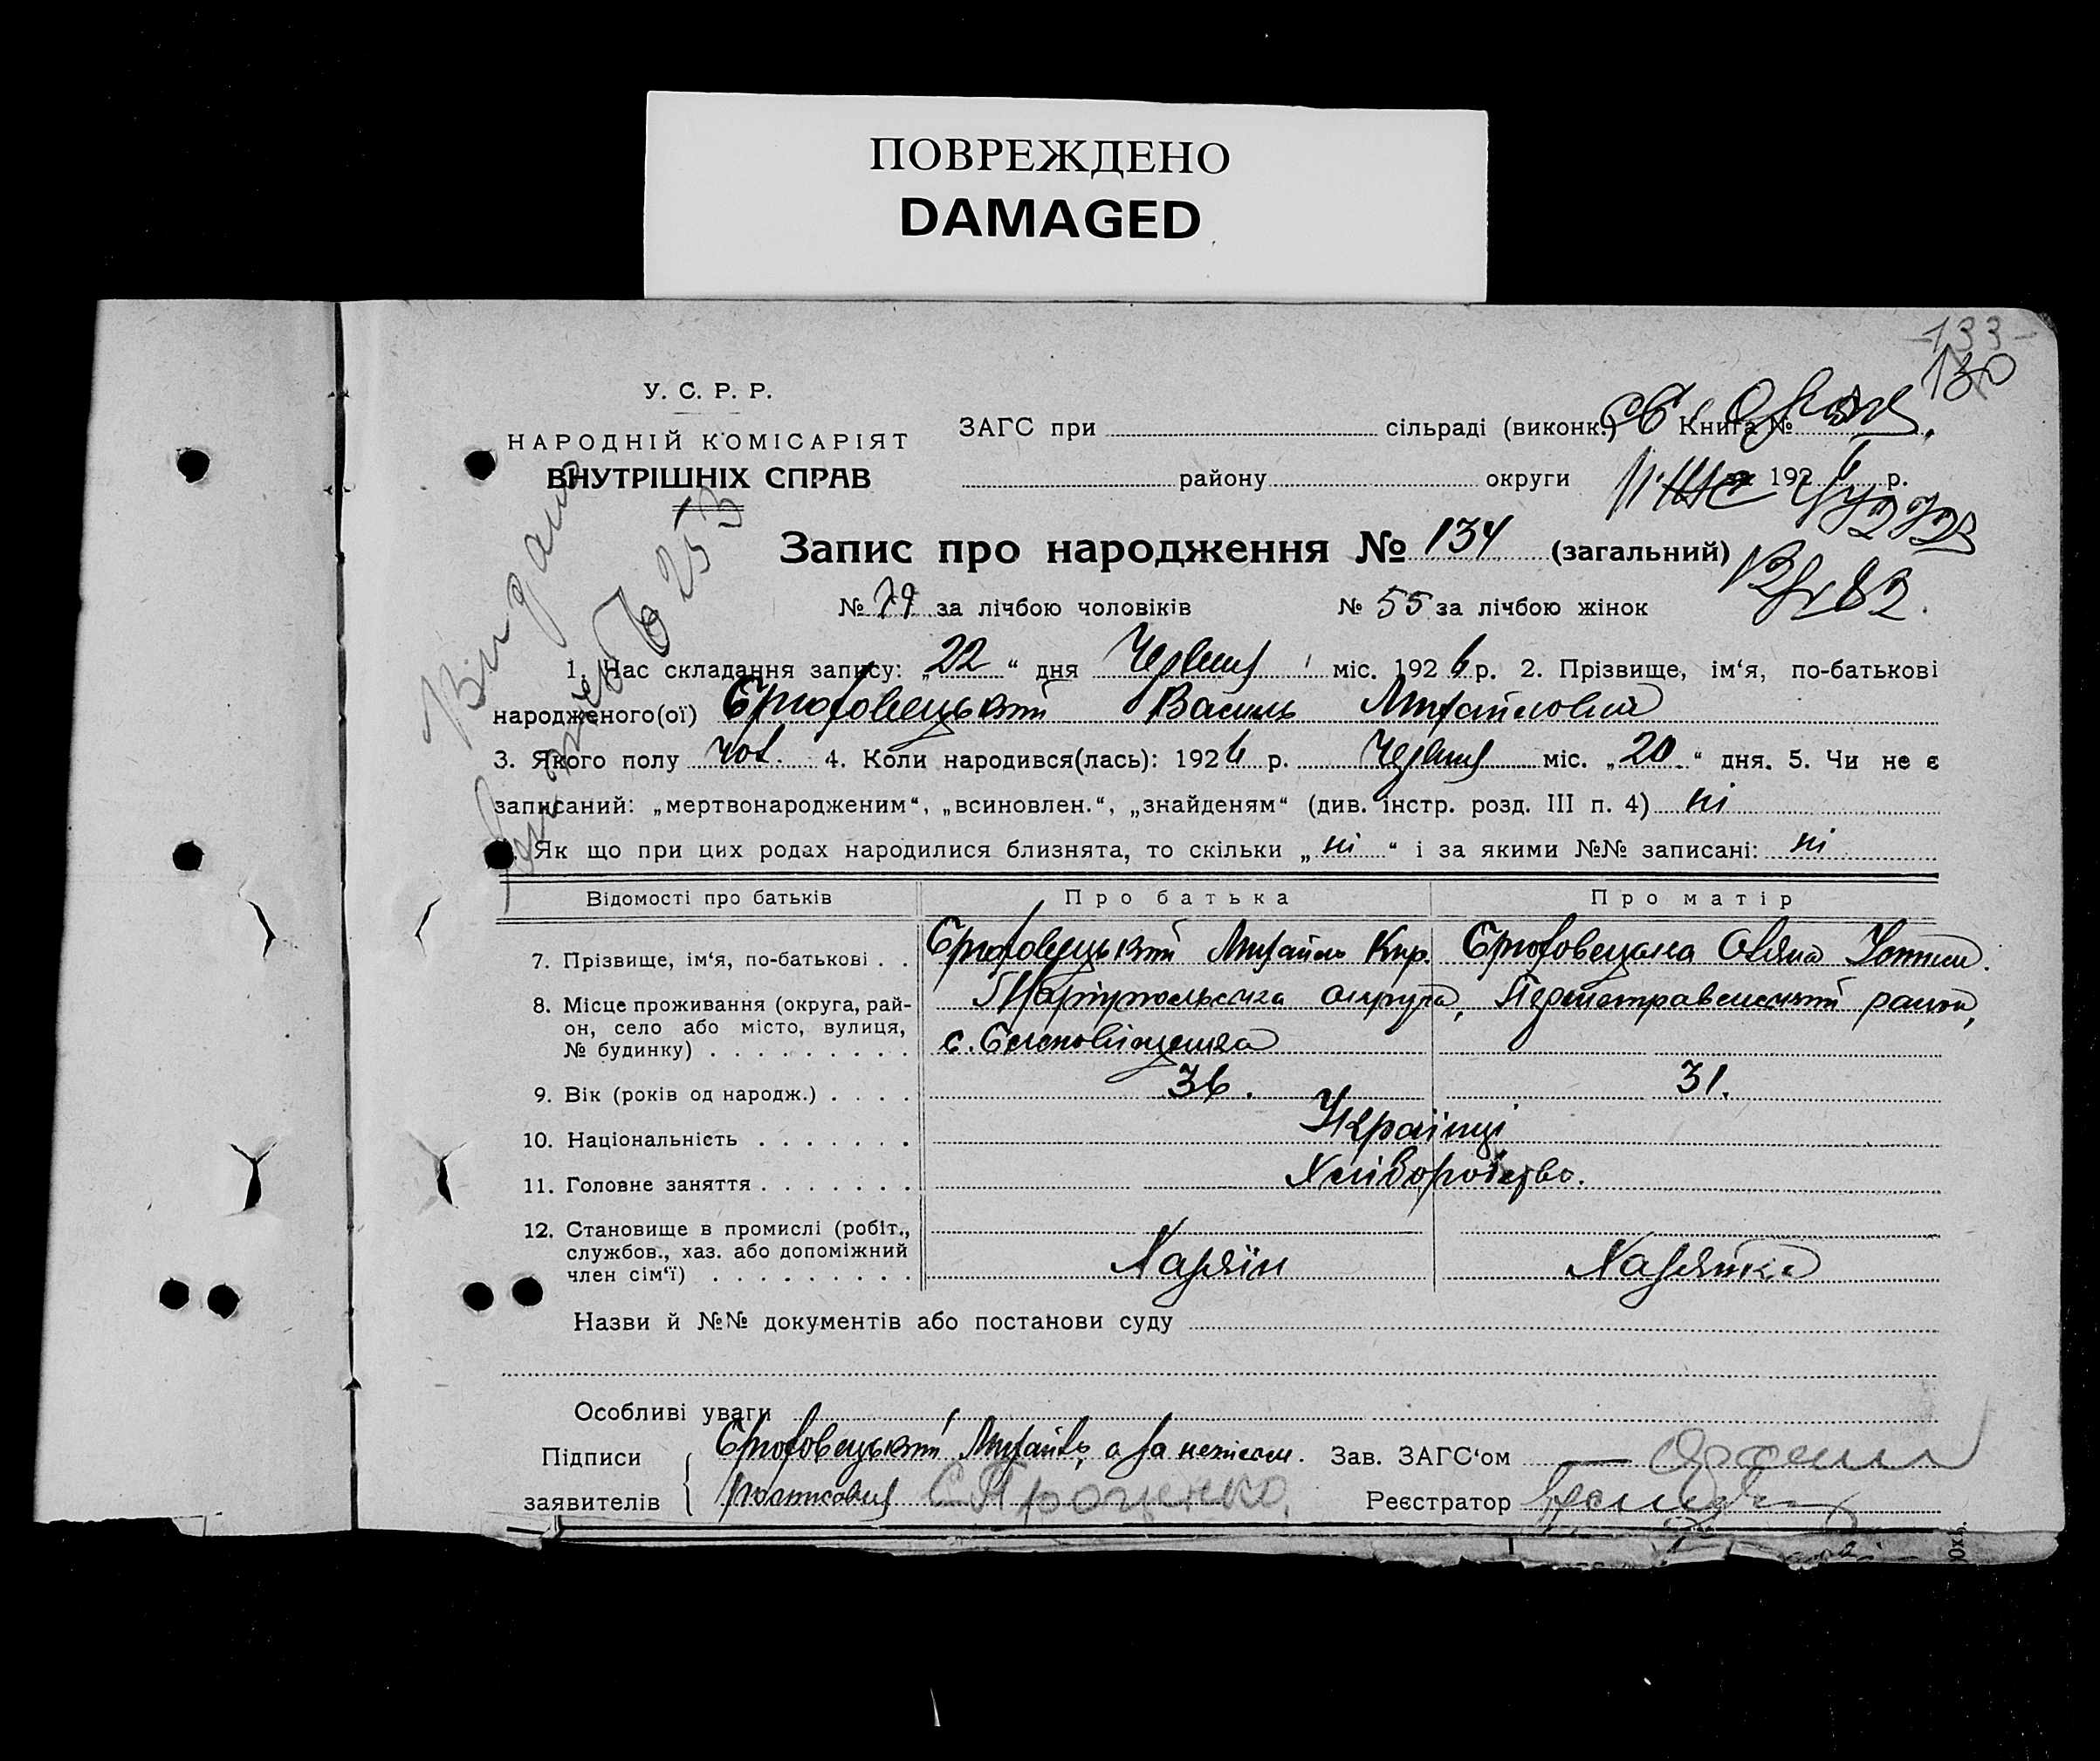 ПОВРЕЖДЕНО
DAMAGED
-133-
130
У. С. Р. Р.
НАРОДНІЙ КОМІСАРІЯТ
ВНУТРІШНІХ СПРАВ
ЗАГС при сільраді (виконк.) Книга №
району округи за 1926 р.
Запис про народження № 134 (загальний)
№ 79 за лічбою чоловіків № 55 за лічбою жінок
1. Час складання запису: „22“ дня Червня міс. 1926 р. 2. Прізвище, ім‘я, по-батькові
народженого(ої) Василь Михайлович
3. Якого полу чол. 4. Коли народився(лась): 1926 р. Червня міс. „20“ дня. 5. Чи не є
записаний: „мертвонародженим“, „всиновлен.“, „знайденям“ (див. інстр. розд. III п. 4) ні
Як що при цих родах народилися близнята, то скільки „ні“ і за якими №№ записані: ні
Відомості про батьків Про батька Про матір
7. Прізвище, ім‘я, по-батькові . . Михайло Кир.
8. Місце проживання (округа, рай-
он, село або місто, вулиця,
№ будинку) . . . . . . . . .
Маріупольська округа, Першотравенський район,
с.
9. Вік (років од народж.) . . . . 36. 31.
10. Національність . . . . . . . Українці
11. Головне заняття . . . . . . . Хліборобство.
12. Становище в промислі (робіт.,
службов., хаз. або допоміжний
член сім‘ї) . . . . . . . . .
Хазяїн Хазяйка
Назви й №№ документів або постанови суду
Особливі уваги
Підписи Михайло, а за неписьм. Зав. ЗАГС‘ом
заявителів розписався С. Проценко. Реєстратор